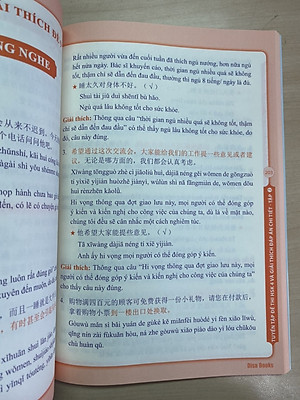 ẢI THÍCH ĐỀ
NG NGHE
会从来不迟到，今
个电话问问吧。
Rất nhiều người vừa đến cuối tuần đã thích ngủ nướng, hơn nữa ngủ
hết nửa ngày. Bác sĩ khuyến cáo, thời gian ngủ nhiều quá sẽ không
tốt, thậm chí sẽ dẫn đến đau đầu, thường thì ngủ 8 tiếng/ ngày là đủ.
★ 睡太久对身体不好。（ √ ）
Shuì tài jiǔ duì shēntǐ bù hǎo.
Ngủ quá lâu không tốt cho sức khỏe.
Giải thích: Thông qua câu "thời gian ngủ nhiều quá sẽ không tốt, thậm
chí sẽ dẫn đến đau đầu" có thể thấy ngủ lâu không tốt cho sức khỏe, do
đó, câu này đúng.
3. 希望通过这次交流会，大家能给我们的工作提一些意见或者建
议，无论是哪方面的，我们都会认真考虑。
Xīwàng tōngguò zhè cì jiāoliú huì, dàjiā néng gěi wǒmen de gōngzuò
tí yìxiē yìjiàn huòzhě jiànyì, wúlùn shì nǎ fāngmiàn de, wǒmen dōu
huì rènzhēn kǎolǜ.
Hi vọng thông qua đợt giao lưu này, mọi người có thể đóng góp
ý kiến và kiến nghị cho công việc của chúng ta, dù là về mặt nào,
chúng tôi đều sẽ cân nhắc một cách nghiêm túc.
★ 他希望大家能提些意见。（ √ ）
Tā xīwàng dàjiā néng tí xiē yìjiàn.
Anh ấy hi vọng mọi người có thể đóng góp ý kiến.
Giải thích: Thông qua câu "Hi vọng thông qua đợt giao lưu này, mọi
người có thể đóng góp ý kiến và kiến nghị cho công việc của chúng ta"
cho thấy câu này đúng.
4. 购物满四百元的顾客可免费获得一份小礼物，请您在付款后，
拿着购物小票到一楼出口处换取。
Gòuwù mǎn sì bǎi yuán de gùkè kě miǎnfèi huòdé yí fèn xiǎo lǐwù,
qǐng nín zài fùkuǎn hòu, ná zhe gòuwù xiǎo piào dào yī lóu chūkǒu
chù huàn qǔ.
TUYỂN TẬP ĐỀ THI HSK 4 VÀ GIẢI THÍCH ĐÁP ÁN CHI TIẾT - TẬP